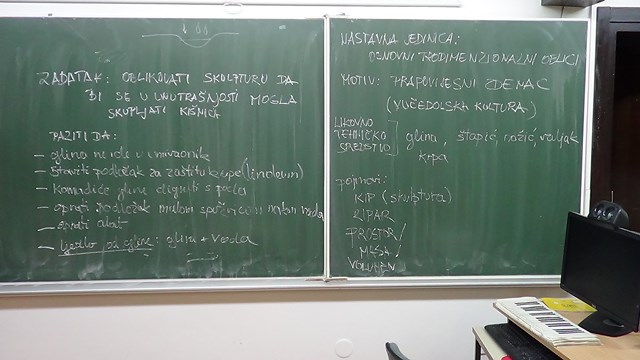 ZADATAK: OBLIKOVATI SKULPTURU DA
BI SE U UNUTRAŠNJOSTI MOGLA
SKUPLJATI KIŠNICA
PAZITI DA:
- glina ne ode u umivaonik
- staviti podložak za zaštitu klupe (linoleum)
- komadiće gline dignuti s poda
- oprati podložak malom spužvicom
- oprati alat
- ljepilo od gline: glina + voda
NASTAVNA JEDINICA:
OSNOVNI TRODIMENZIONALNI OBLICI
MOTIV: PRAPOVIJESNI ZDENAC
(VUČEDOLSKA KULTURA)
LIKOVNO
TEHNIČKO
SREDSTVO
glina, štapić, nožić, valjak
krpa
pojmovi:
KIP (skulptura)
KIPAR
PROSTOR/
MASA/
VOLUMEN